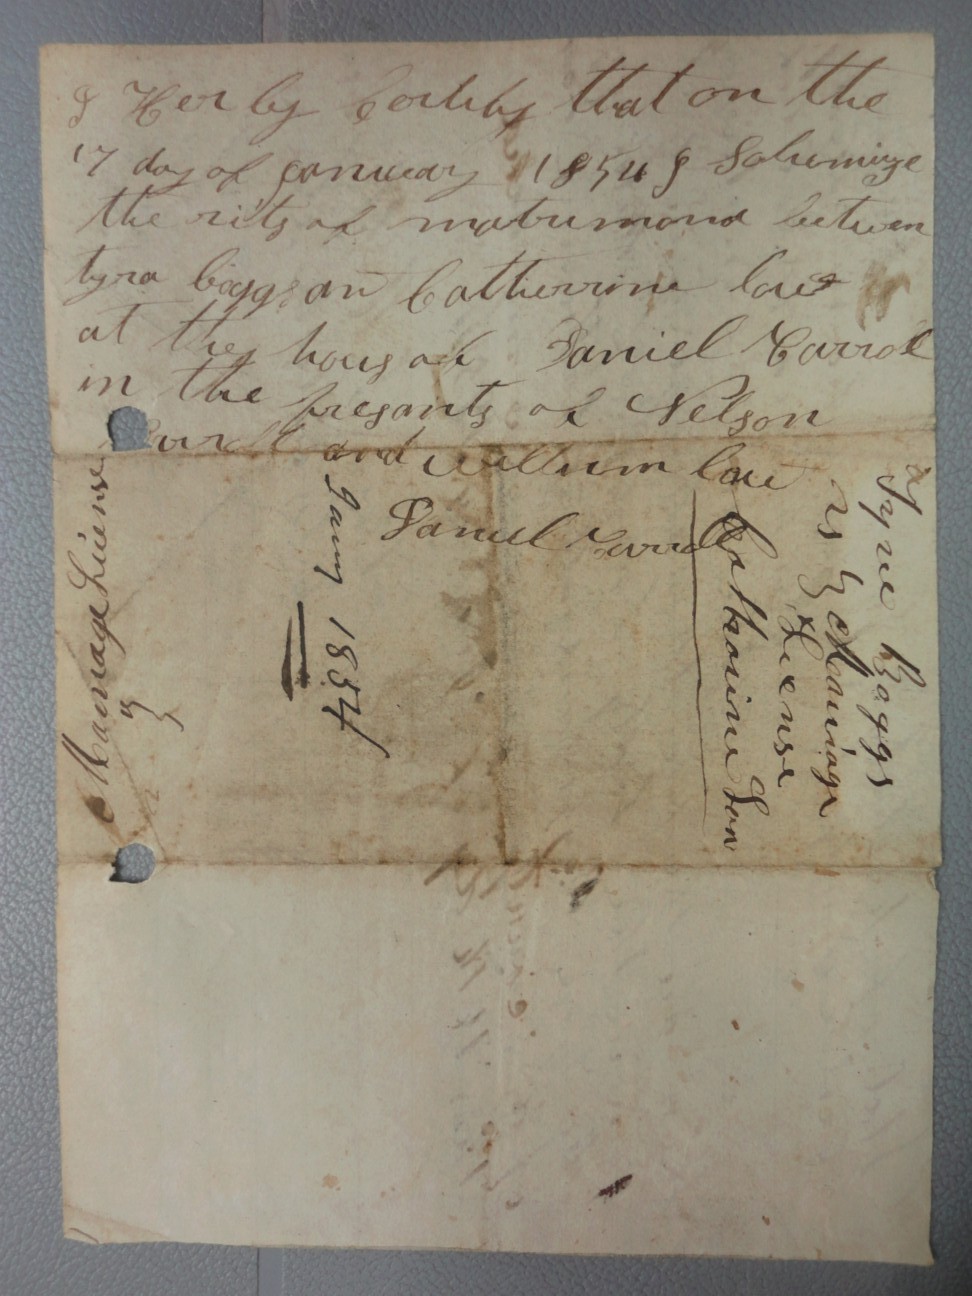 I Her by Certify that on the
17 day of January 1854 I Solumnize
the rits of matrimond between
tyra bagg an Catherrine low
at the hous of Daniel Carroll
in the presants of Nelson
and William low
Daniel Carroll
Marriage License
Jany 1854
Tyre Baggs
Marriage
License
Catharine Low